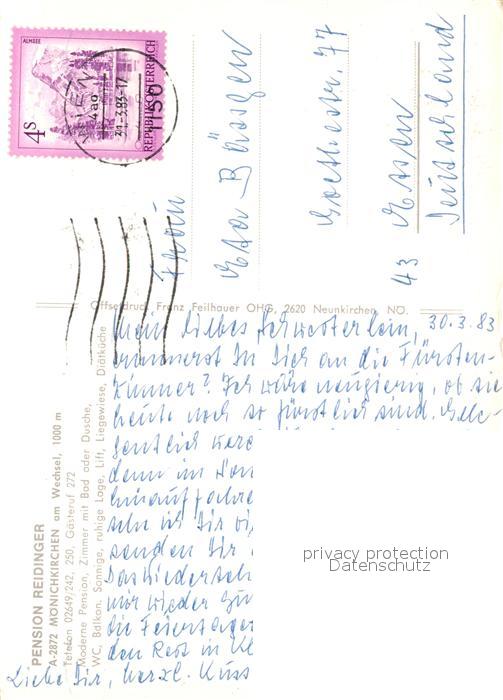 ALMSEE
4 S
REPUBLIK ÖSTERREICH
WIEN
31.-3.83-17
1150
Frau
Eta Börsgen
Goethestr. 77
43 Essen
Deutschland
Offsetdruck Franz Feilhauer OHG, 2620 Neunkirchen NÖ.
PENSION REIDINGER
A-2872 MÖNICHKIRCHEN am Wechsel, 1000 m
Telefon 02649/242, 250, Gästeruf 272
Moderne Pension, Zimmer mit Bad oder Dusche,
WC, Balkon. Sonnige, ruhige Lage, Lift, Liegewiese, Diätküche
Mein liebes Schwesterlein, 30.3.83
erinnerst Du Dich an die Fürsten-
zimmer? Ich wäre neugierig, ob sie
heute noch so fürstlich sind. Gele-
gentlich werd
denn im
hinauffahre
sehn ich Dir
senden Dir
Das Wiederseh
mir wieder
die Feiertage
den Rest in
Liebe Dir, herzl. Kuss
privacy protection
Datenschutz